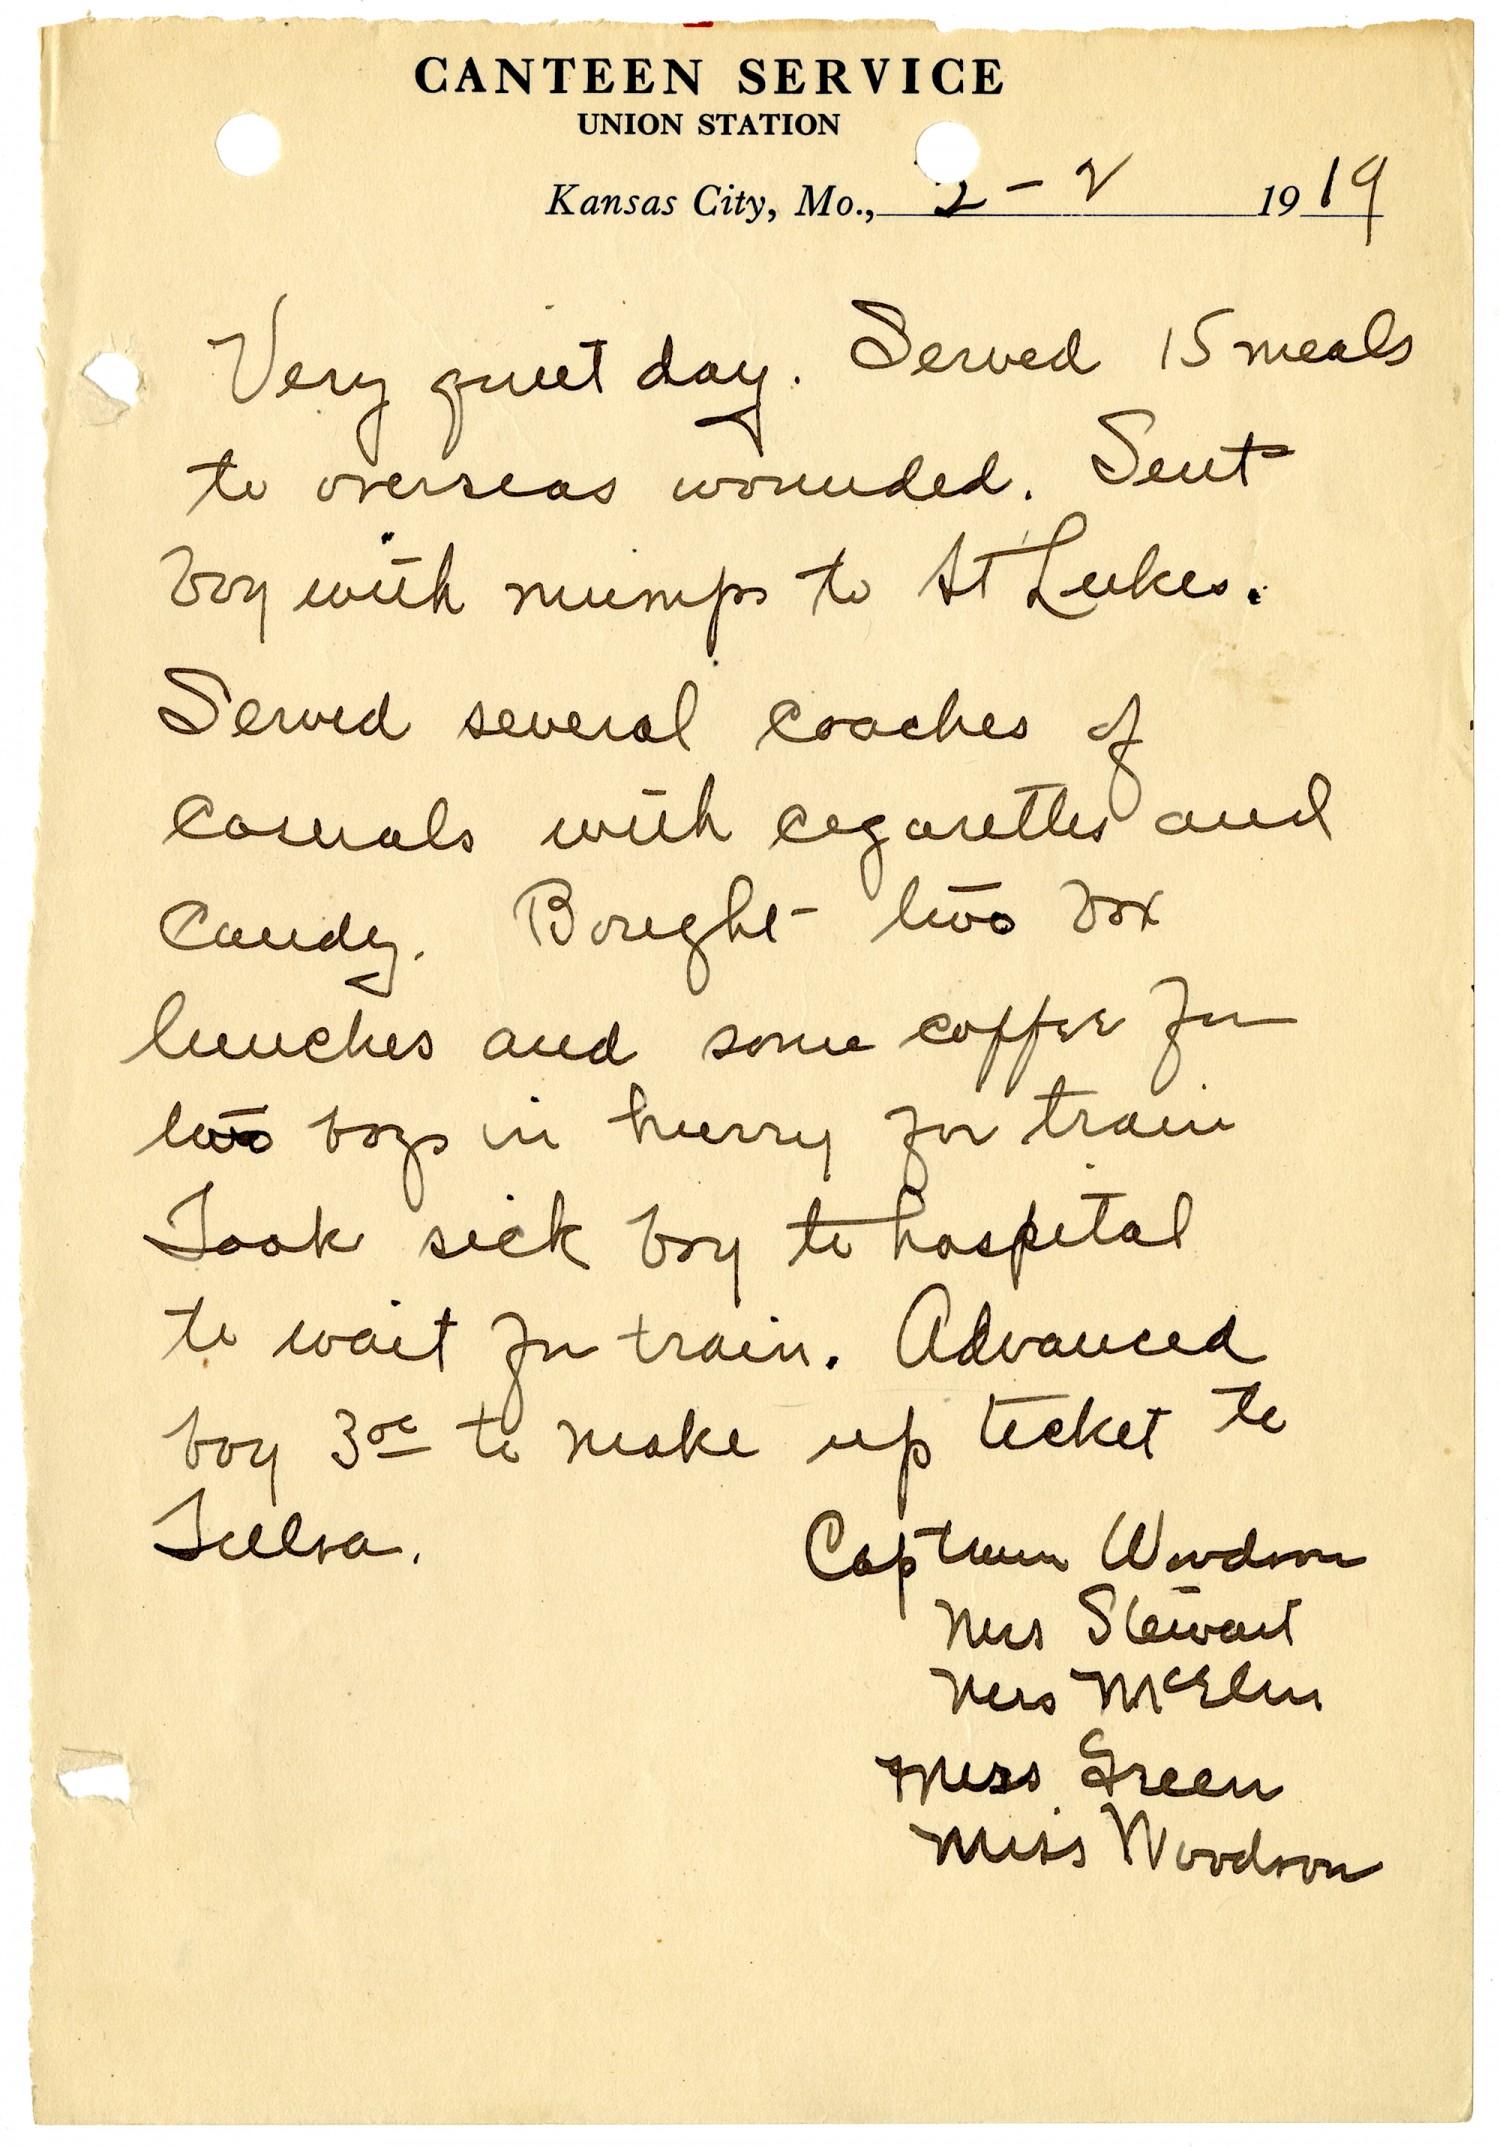 CANTEEN SERVICE
UNION STATION
Kansas City, Mo., 2-2 1919
Very quiet day. Served 15 meals
to overseas wounded. Sent
boy with mumps to St Lukes.
Served several coaches of
casuals with cigarettes and
candy. Bought two box
lunches and some coffee for
two boys in hurry for train
Took sick boy to hospital
to wait for train. Advanced
boy 3oc to make up ticket to
Tulsa.
Captain Woodson
Mrs Stewart
Mrs
Miss Green
Miss Woodson